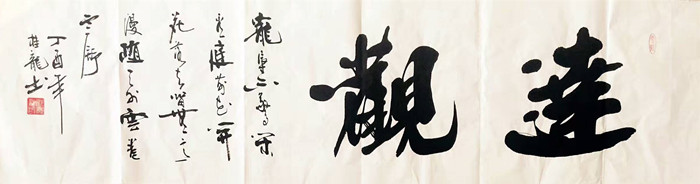 達觀
寵辱不驚閑
看庭前花開
花落去留無意
漫隨天外雲卷
雲舒
丁酉年
桂龍书